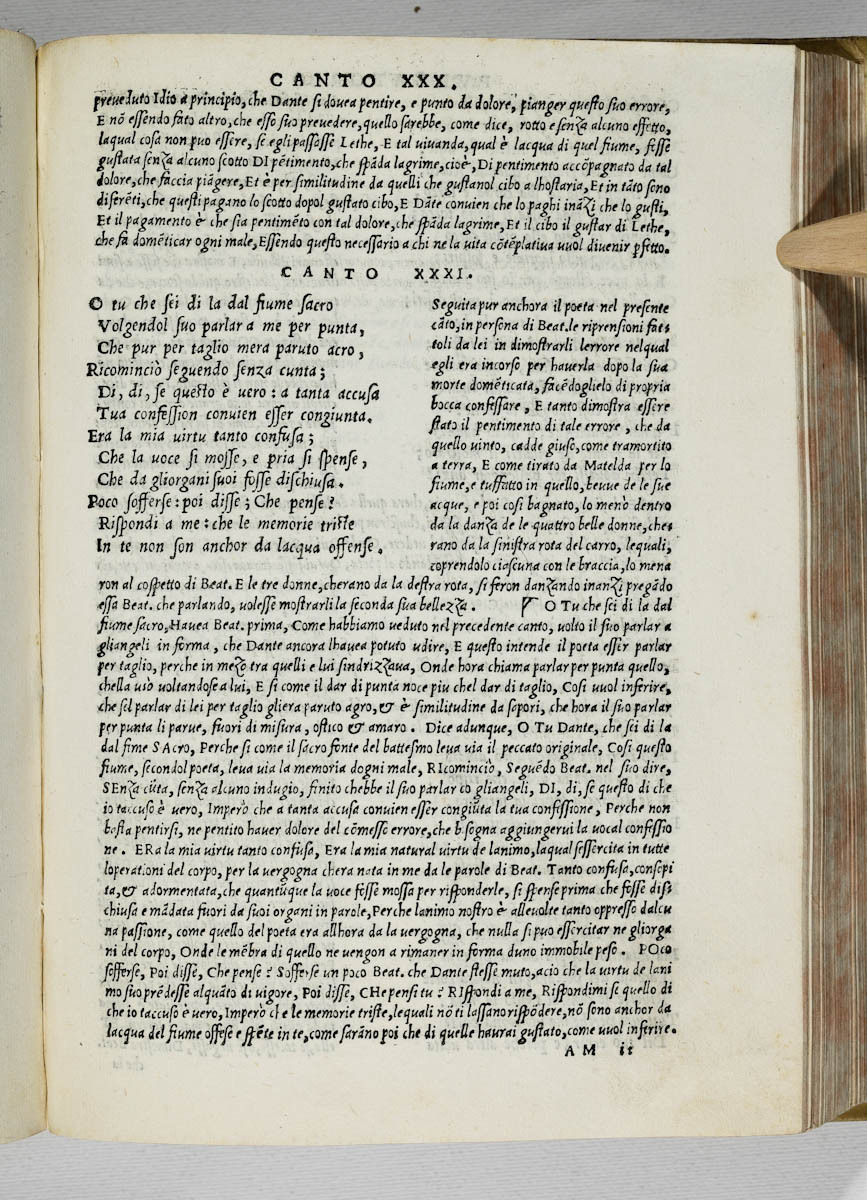 CANTO XXX.
preveduto Idio a principio, che Dante si dovea pentire, e punto da dolore, pianger questo suo errore,
E nō essendo fato altro, che esso suo prevedere, quello sarebbe, come dice, rotto e senza alcuno effetto,
laqual cosa non puo essere, se egli passasse Lethe, E tal vivanda, qual è lacqua di quel fiume, fesse
gustata senza alcuno scotto DI pētimento, che spāda lagrime, cioè, Di pentimento accōpagnato da tal
dolore, che faccia piāgere, Et è per similitudine da quelli che gustanol cibo a lhostaria, Et in tāto sono
diferēti, che questi pagano lo scotto dopol gustato cibo, E Dāte convien che lo paghi ināzi che lo gusti,
Et il pagamento è che sia pentimēto con tal dolore, che spāda lagrime, Et il cibo il gustar di Lethe,
che fa domēticar ogni male, Essendo questo necessario a chi ne la vita cōtēplativa vuol divenir pfetto.
CANTO XXXI.
O tu che sei di la dal fiume sacro
Volgendol suo parlar a me per punta,
Che pur per taglio mera paruto acro,
Ricominciò seguendo senza cunta;
Di, di, se questo è vero: a tanta accusa
Tua confession convien esser congiunta.
Era la mia virtu tanto confusa;
Che la voce si mosse, e pria si spense,
Che da gliorgani suoi fosse dischiusa.
Poco sofferse: poi disse; Che pense?
Rispondi a me: che le memorie triste
In te non son anchor da lacqua offense.
Seguita pur anchora il poeta nel presente
cāto, in persona di Beat. le riprensioni fat=
toli da lei in dimostrarli lerrore nelqual
egli era incorso per haverla dopo la sua
morte domēticata, facēdoglielo di propria
bocca confessare, E tanto dimostra essere
stato il pentimento di tale errore, che da
quello vinto, cadde giuso, come tramortito
a terra, E come tirato da Matelda per lo
fiume, e tuffatto in quello, bevve de le sue
acque, e poi cosi bagnato, lo menò dentro
da la danza de le quattro belle donne, che=
rano da la sinistra rota del carro, lequali,
coprendolo ciascuna con le braccia, lo mena
ron al cospetto di Beat. E le tre donne, cherano da la destra rota, si feron danzando inanzi pregādo
essa Beat. che parlando, volesse mostrarli la seconda sua bellezza. O Tu che sei di la dal
fiume sacro, Havea Beat. prima, Come habbiamo veduto nel precedente canto, volto il suo parlar a
gliangeli in forma, che Dante ancora lhavea potuto udire, E questo intende il poeta esser parlar
per taglio, perche in mezo tra quelli e lui sindrizzava, Onde hora chiama parlar per punta quello,
chella usò voltandose a lui, E si come il dar di punta noce piu chel dar di taglio, Cosi vuol inferire,
che sel parlar di lei per taglio gliera paruto agro, & è similitudine da sapori, che hora il suo parlar
per punta li parve, fuori di misura, ostico & amaro. Dice adunque, O Tu Dante, che sei di la
dal fime SAcro, Perche si come il sacro fonte del battesmo leva via il peccato originale, Cosi questo
fiume, secondol poeta, leva via la memoria dogni male, RIcominciò, Seguēdo Beat. nel suo dire,
SEnza cūta, senza alcuno indugio, finito chebbe il suo parlar co gliangeli, DI, di, se questo di che
io taccuso è vero, Imperò che a tanta accusa convien esser congiūta la tua confessione, Perche non
basta pentirsi, ne pentito haver dolore del cōmesso errore, che bisogna aggiungervi la vocal confessio
ne. ERa la mia virtu tanto confusa, Era la mia natural virtu de lanimo, laqual sessercita in tutte
loperationi del corpo, per la vergogna chera nata in me da le parole di Beat. Tanto confusa, consepi
ta, & adormentata, che quantūque la voce fesse mossa per risponderle, si spense prima che fesse dis=
chiusa e mādata fuori da suoi organi in parole, Perche lanimo nostro è allevolte tanto oppresso dalcu
na passione, come quello del poeta era allhora da la vergogna, che nulla si puo essercitar ne gliorga
ni del corpo, Onde le mēbra di quello ne vengon a rimaner in forma duno immobile peso. POco
sofferse, Poi disse, Che pense? Sofferse un poco Beat. che Dante stesse muto, acio che la virtu de lani
mo suo prēdesse alquāto di vigore, Poi disse, CHe pensi tu? RIspondi a me, Rispondimi se quello di
che io taccuso è vero, Imperò che le memorie triste, lequali nō ti lassano rispōdere, nō sono anchor da
lacqua del fiume offese e spēte in te, come sarāno poi che di quelle havrai gustato, come vuol inferire.
AM ii